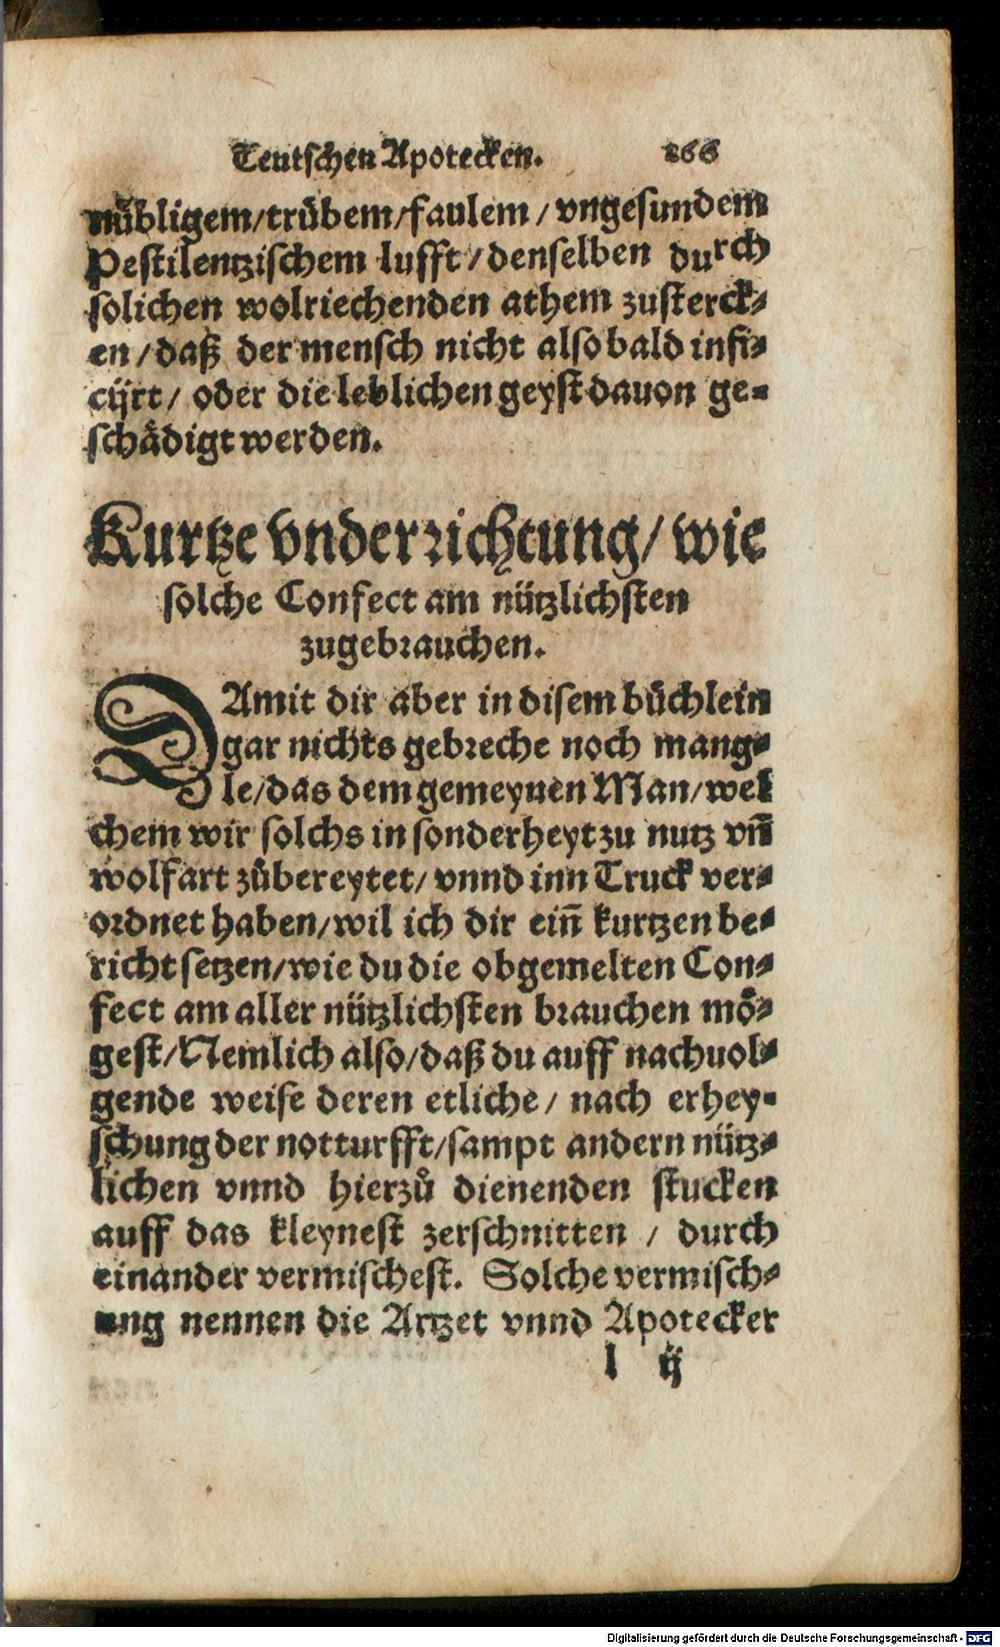 Teutschen Apotecken. 166
nuͤbligem/truͤbem/faulem/vngesundem
Pestilentzischem lufft/denselben durch
solichen wolriechenden athem zusterck⸗
en/daß der mensch nicht also bald infi⸗
cijrt/ oder die leblichen geyst dauon ge⸗
schaͤdigt werden.
Kurtze vnderrichtung/ wie
solche Confect am nützlichsten
zugebrauchen.
DAmit dir aber in disem buͤchlein
gar nichts gebreche noch mang⸗
le/das dem gemeynen Man/wel
chem wir solchs in sonderheyt zu nutz vñ
wolfart zuͦbereytet/ vnnd inn Truck ver⸗
ordnet haben/wil ich dir eiñ kurtzen be⸗
richt setzen/wie du die obgemelten Con⸗
fect am aller nützlichsten brauchen moͤ⸗
gest/Nemlich also/daß du auff nachuol⸗
gende weise deren etliche/ nach erhey⸗
schung der notturfft/sampt andern nütz⸗
lichen vnnd hierzuͦ dienenden stucken
auff das kleynest zerschnitten / durch
einander vermischest. Solche vermisch⸗
ung nennen die Artzet vnnd Apotecker
l ij
Digitalisierung gefördert durch die Deutsche Forschungsgemeinschaft - DFG